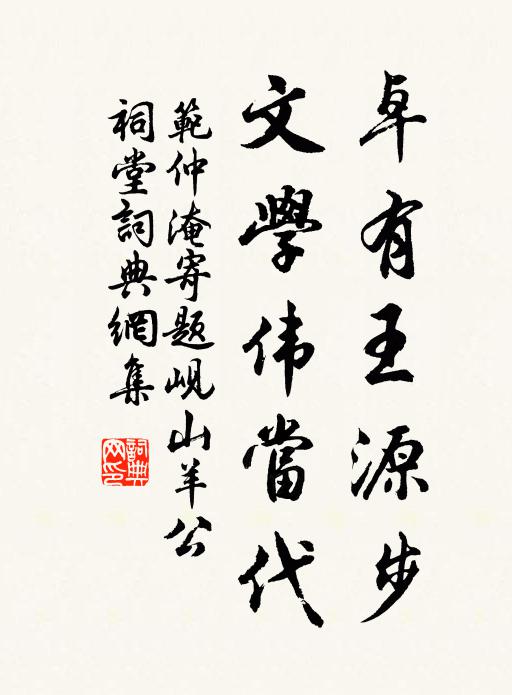 卓有王源步
文學伟當代
範仲淹寄题岘山羊公
祠堂詞典網集
詞典网印